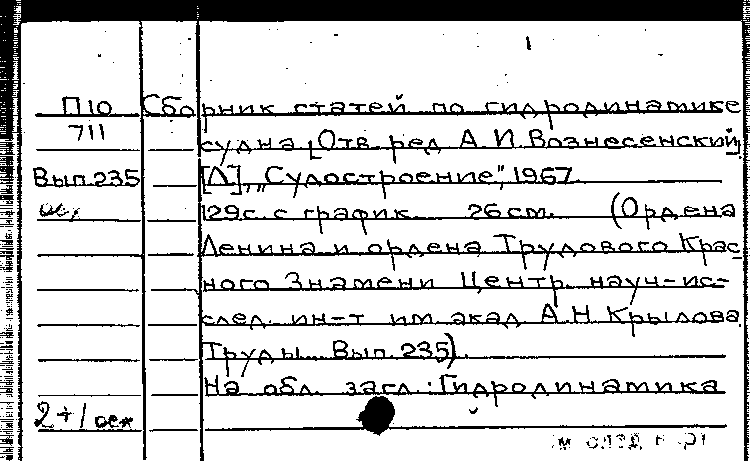 П10 Сборник статей по гидродинамике
711 судна [Отв ред А. И. Вознесенский].
Вып. 235 [Л], „Судостроение", 1967.
129с. с график. 26 см. (Ордена
Ленина и ордена Трудового Крас-
ного Знамени Центр. науч-ис-
след. ин-т им акад А. Н Крылова
Труды. Вып. 235).
На обл. загл.: Гидродинамика
2+1
см след к-рт